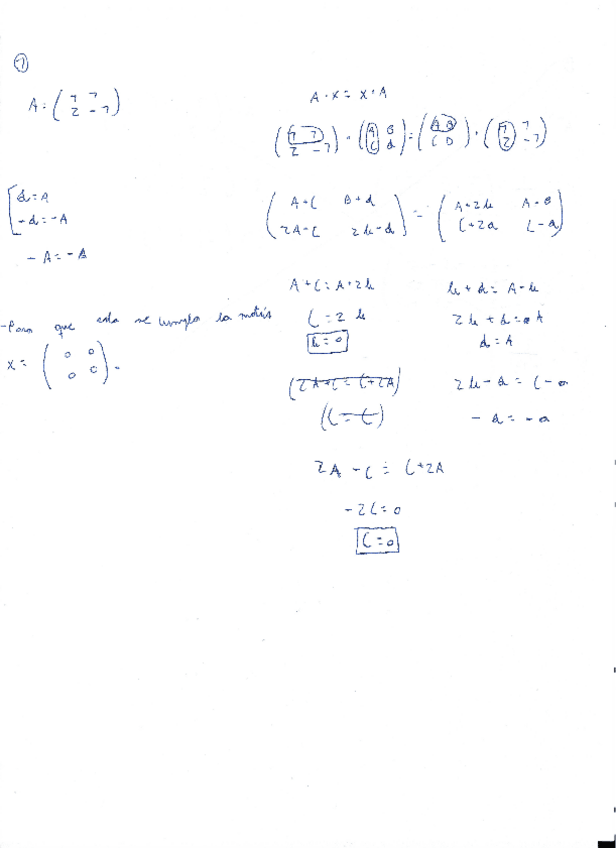 ①
A = ( 1 1 ; 2 -1 )
A · X = X · A
( 1 1 ; 2 -1 ) · ( A B ; C d ) = ( A B ; C D ) · ( 1 1 ; 2 -1 )
( A+C B+d ; 2A-C 2b-d ) = ( A+2b A-B ; C+2a C-a )
A+C = A+2b
C = 2b
b = 0
b + d = A - b
2b + d = A
d = A
(2A+C = C+2A)
(C = C)
2b - d = C - a
- d = - a
2A - C = C+2A
-2C = 0
C = 0
d = A
-d = -A
- A = - A
- Para que esta se cumpla la matriz
X = ( 0 0 ; 0 0 ).